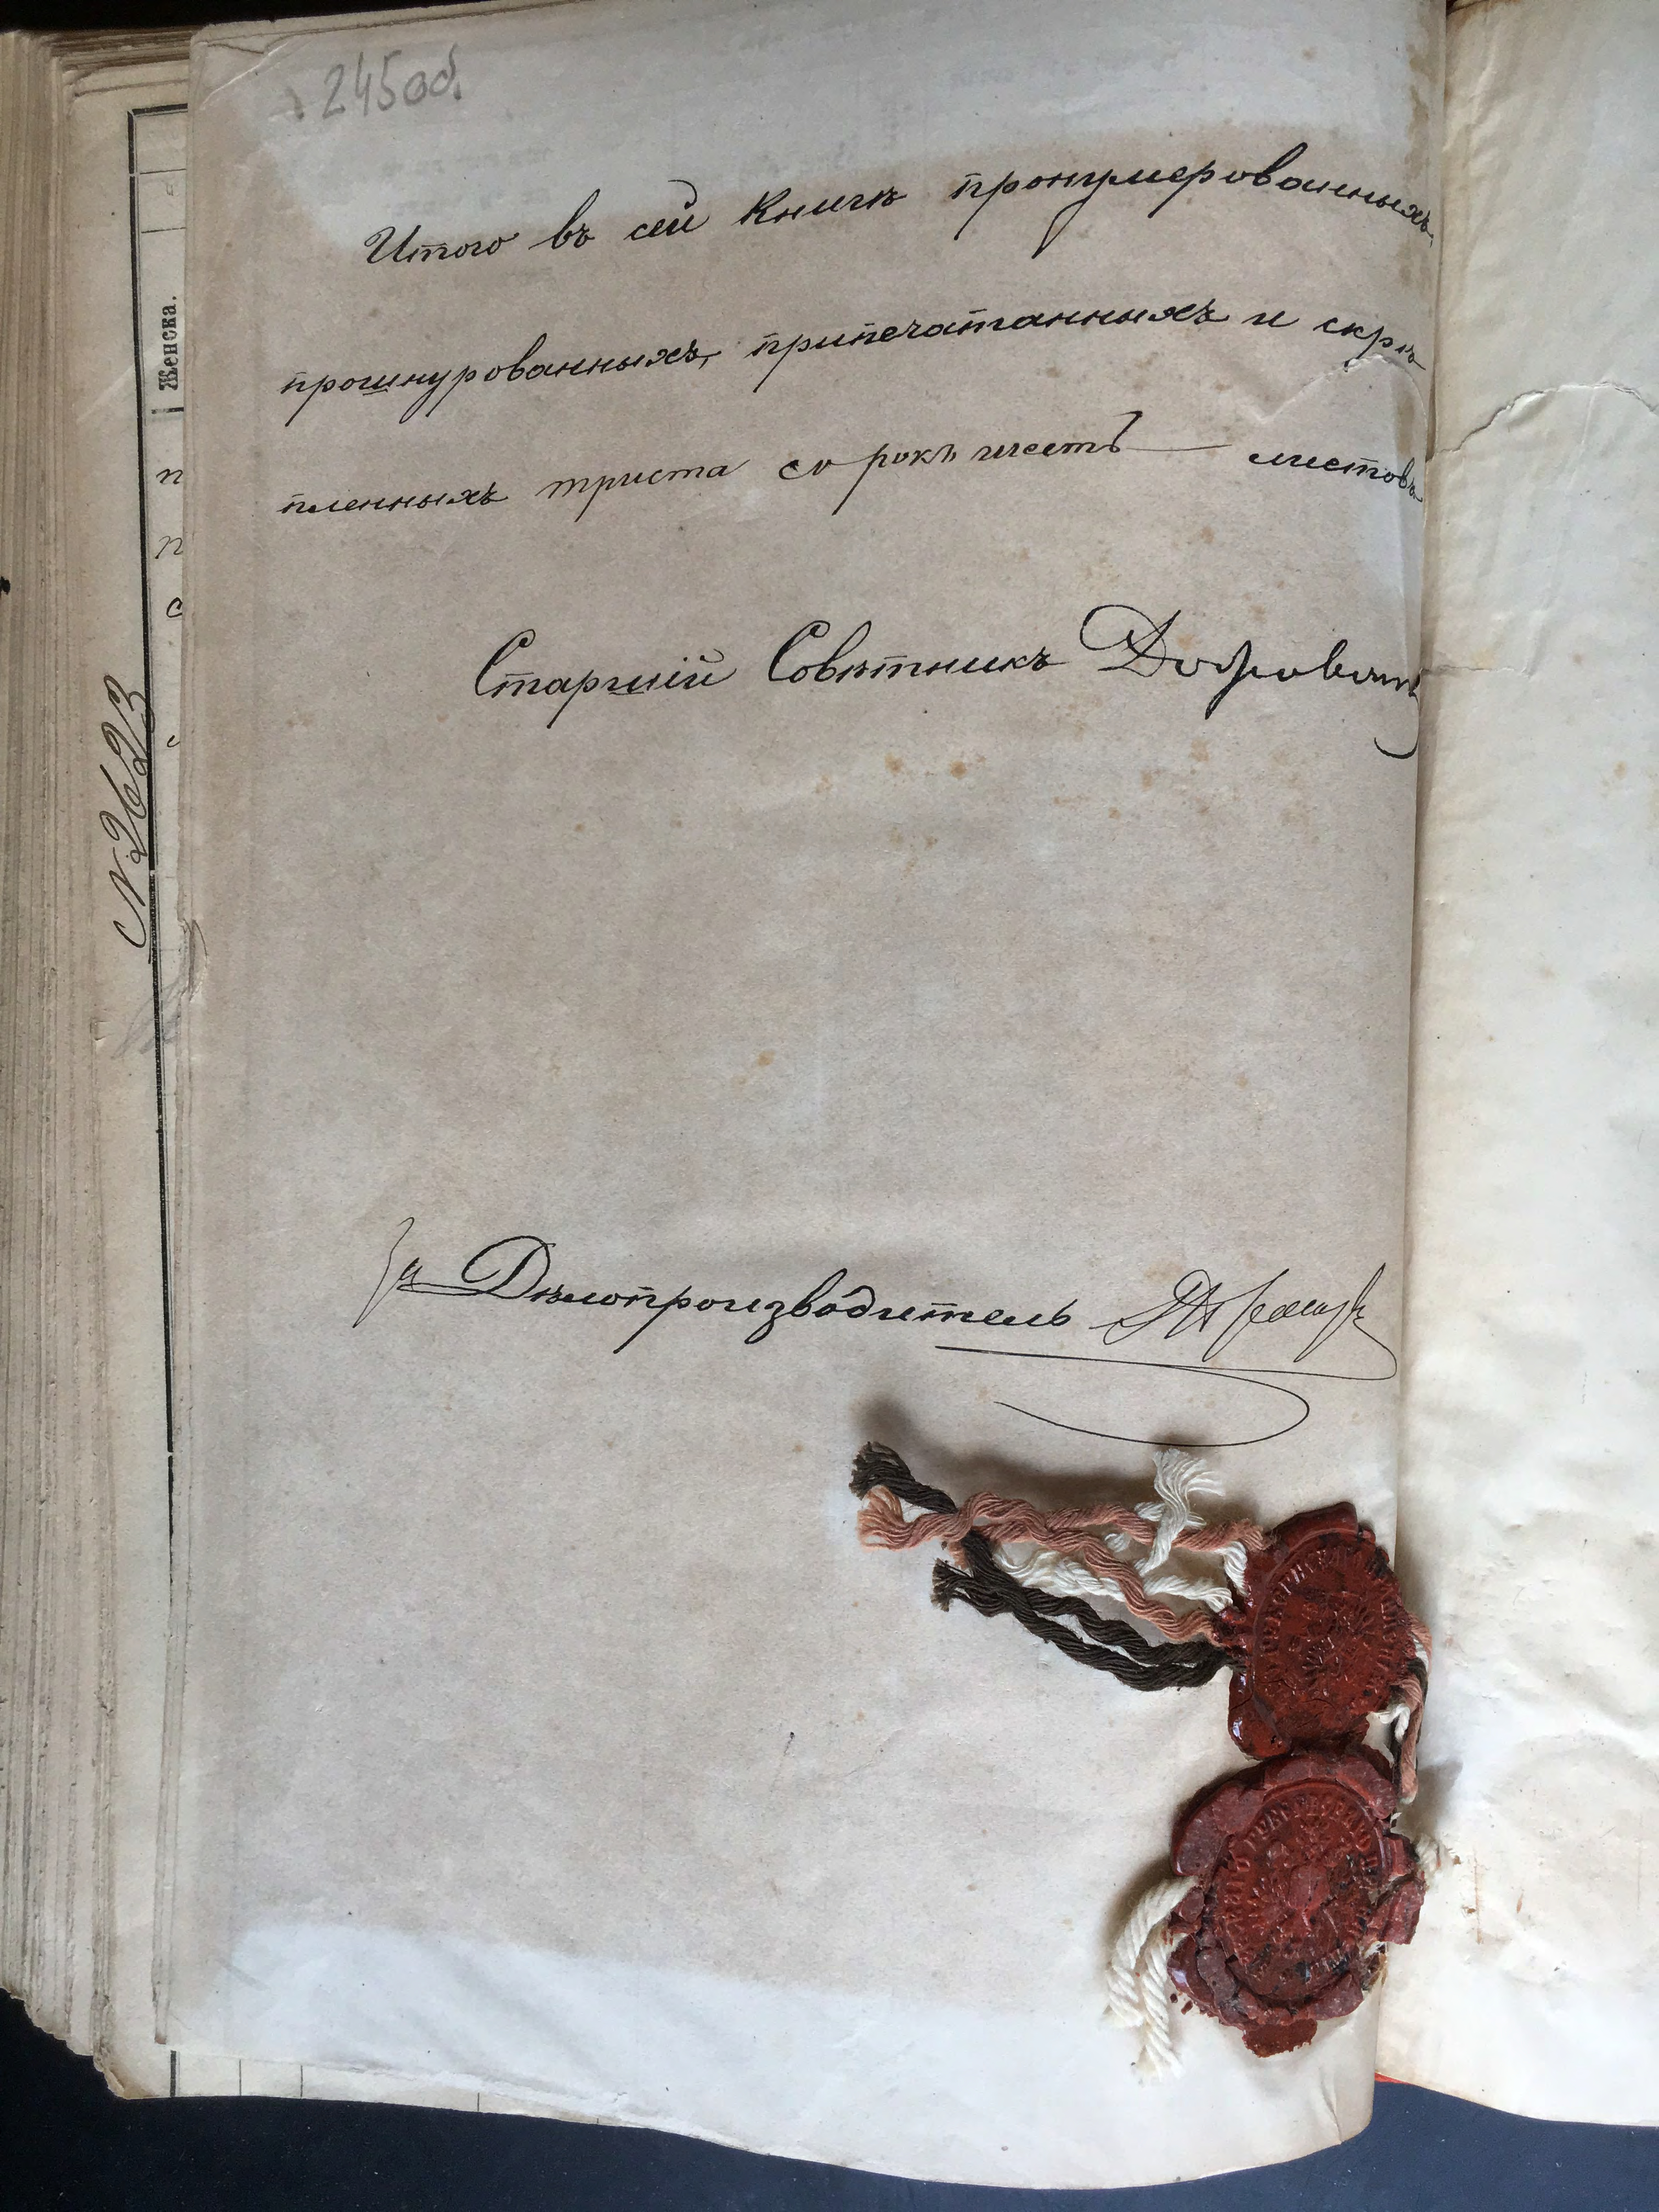 245об.
Итого въ сей книгѣ пронумерованныхъ,
прошнурованныхъ, припечатанныхъ и скрѣ
пленныхъ триста сорокъ шесть листовъ
Старшій Совѣтникъ
За Дѣлопроизводитель
Женска.
п
р
с
№ 2623